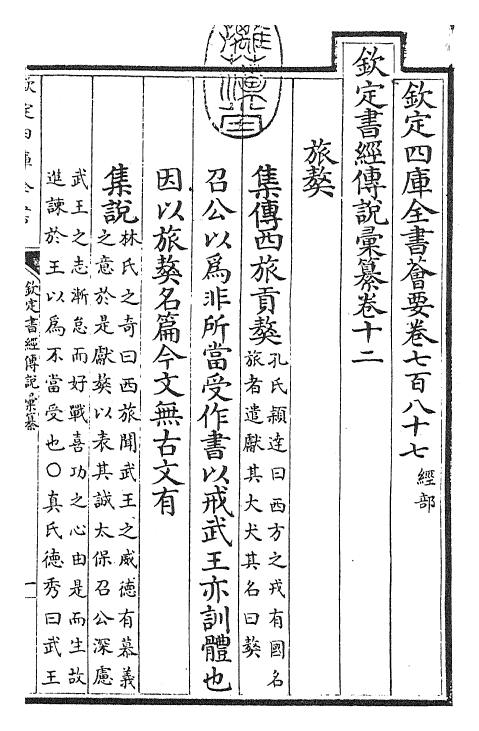 欽定四庫全書薈要卷七百八十七 經部
欽定書經傳說彙纂卷十二
旅獒
集傳西旅貢獒孔氏穎達曰西方之戎有國名
旅者遣獻其大犬其名曰獒
召公以為非所當受作書以戒武王亦訓體也
因以旅獒名篇今文無古文有
集說林氏之奇曰西旅聞武王之威德有慕義
之意於是獻獒以表其誠太保召公深慮
武王之志漸怠而好戰喜功之心由是而生故
進諫於王以為不當受也○真氏德秀曰武王
欽定四庫全書
欽定書經傳說彙纂
一